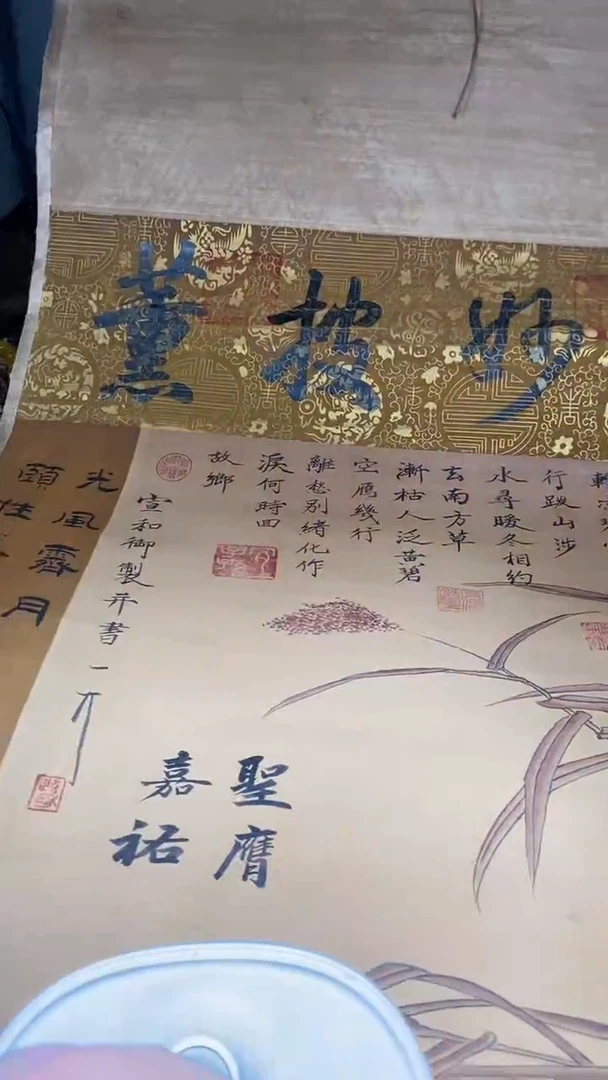 妙
薰
行跋山涉
水尋暖冬相約
去南方草
漸枯人泛黃碧
空雁幾行
離愁別緒化作
淚何時回
故鄉
宣和御製并書
聖膺
嘉祐
光風霽月
頤性